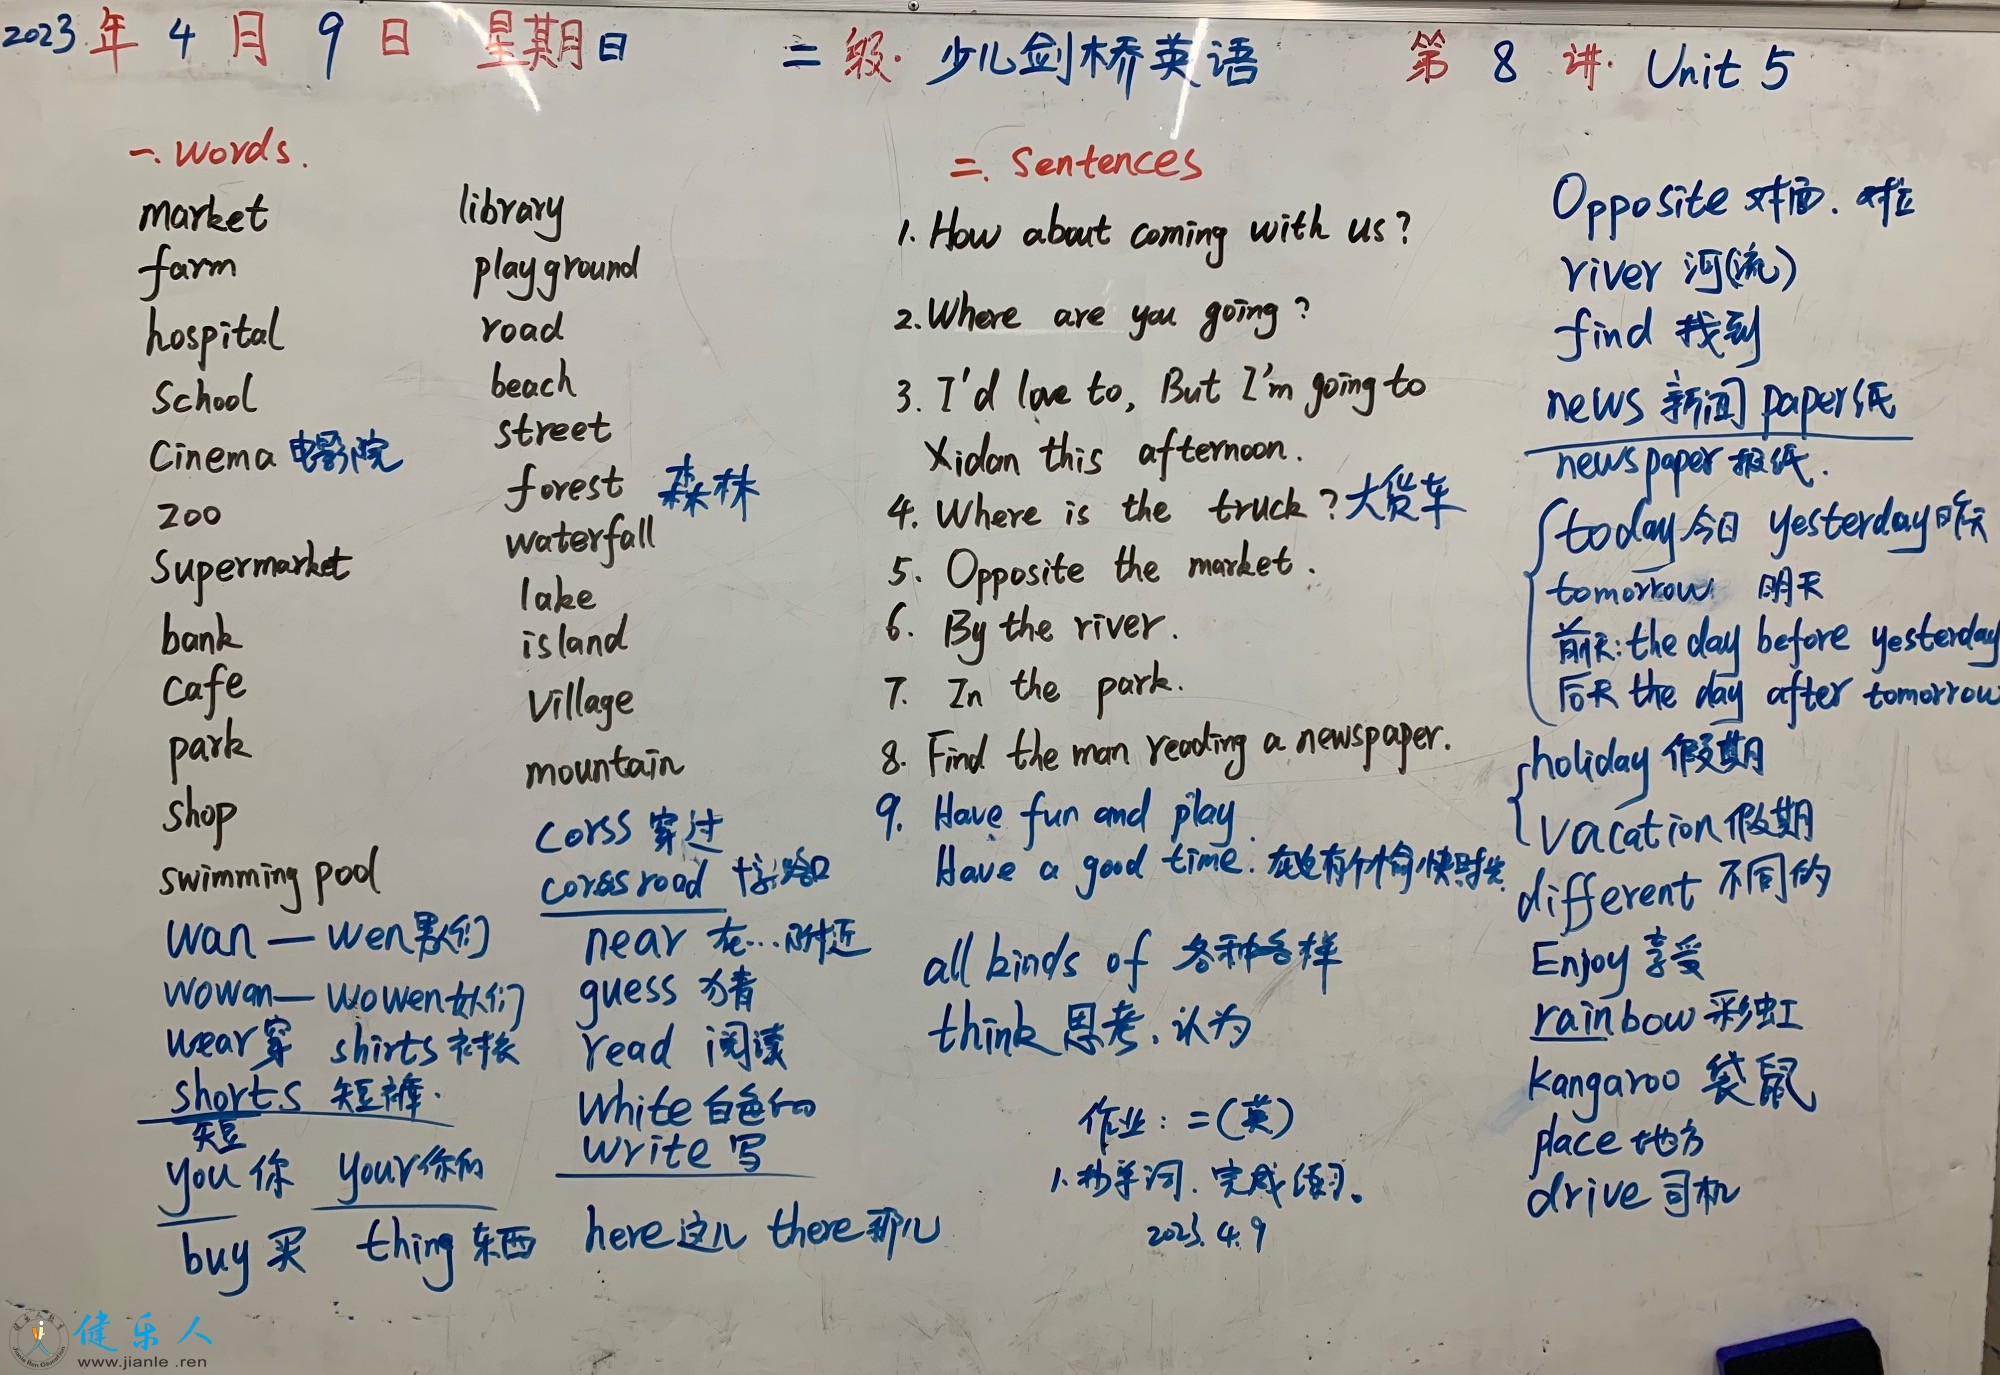 2023年4月9日 星期日 二级·少儿剑桥英语 第8讲·Unit 5
一.words.
market
farm
hospital
School
Cinema 电影院
zoo
Supermarket
bank
cafe
park
shop
swimming pool
wan — wen 男人们
wowan — wowen 女人们
wear 穿 shirts 衬衣
shorts 短裤.
短
you 你 your 你的
buy 买 thing 东西
library
playground
road
beach
street
forest 森林
waterfall
lake
island
Village
mountain
corss 穿过
corss road 十字路口
near 在…附近
guess 猜
read 阅读
white 白色的
write 写
here 这儿 there 那儿
二. Sentences
1. How about coming with us?
2. Where are you going?
3. I'd love to, But I'm going to
Xidan this afternoon.
4. Where is the truck? 大货车
5. Opposite the market.
6. By the river.
7. In the park.
8. Find the man reading a newspaper.
9. Have fun and play.
Have a good time. 在这有个愉快时光
all kinds of 各种各样
think 思考、认为
作业:二(英)
1.抄单词.完成练习。
2023.4.9
Opposite 对面.对立
river 河(流)
find 找到
news 新闻 paper 纸
newspaper 报纸.
today 今日 yesterday 昨天
tomorrow 明天
前天:the day before yesterday
后天 the day after tomorrow
holiday 假期
vacation 假期
different 不同的
Enjoy 享受
rainbow 彩虹
kangaroo 袋鼠
place 地方
drive 司机
健乐人
www.jianle.ren